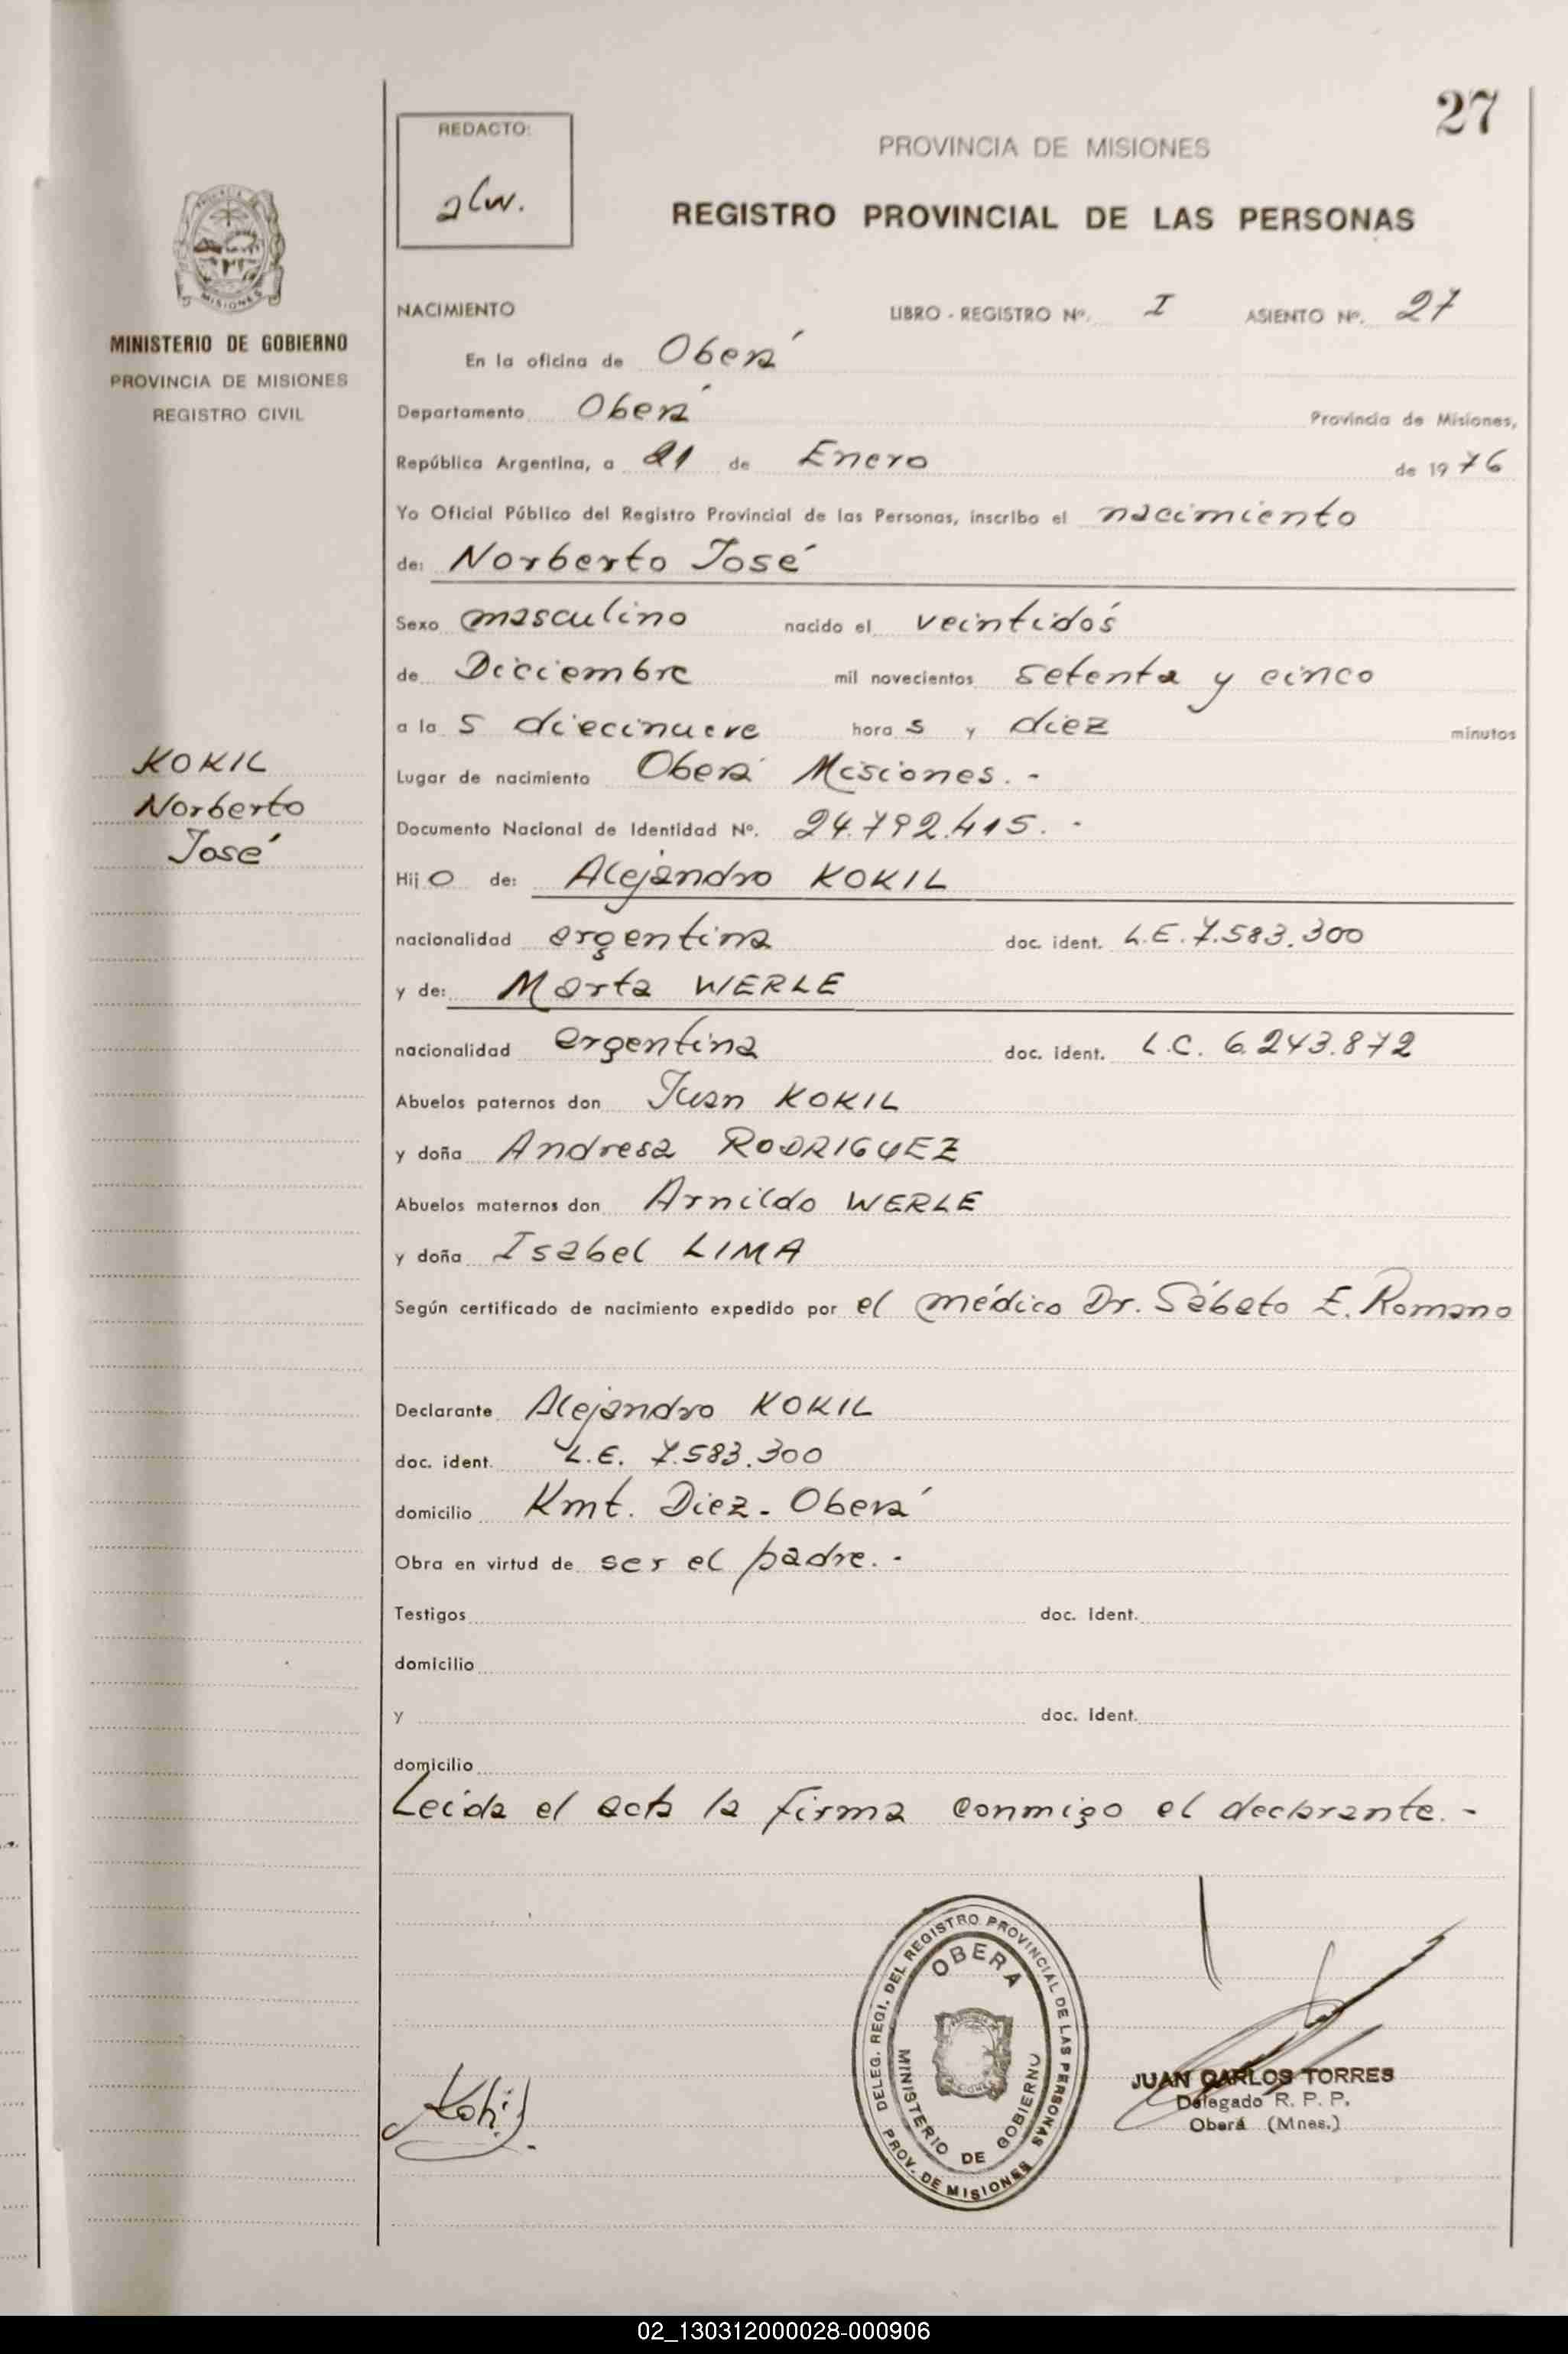 27
REDACTO:
alw.
PROVINCIA DE MISIONES
REGISTRO PROVINCIAL DE LAS PERSONAS
MISIONES
MINISTERIO DE GOBIERNO
PROVINCIA DE MISIONES
REGISTRO CIVIL
KOKIL
Norberto
José
NACIMIENTO LIBRO - REGISTRO Nº. I ASIENTO Nº. 27
En la oficina de Oberá
Departamento Oberá Provincia de Misiones,
República Argentina, a 21 de Enero de 1976
Yo Oficial Público del Registro Provincial de las Personas, inscribo el nacimiento
de: Norberto José
Sexo masculino nacido el veintidós
de Diciembre mil novecientos setenta y cinco
a las diecinueve horas y diez minutos
Lugar de nacimiento Oberá Misiones. -
Documento Nacional de Identidad Nº. 24.792.415. -
Hijo de: Alejandro KOKIL
nacionalidad argentina doc. ident. L.E. 7.583.300
y de: Marta WERLE
nacionalidad argentina doc. ident. L.C. 6.243.872
Abuelos paternos don Juan KOKIL
y doña Andresa RODRIGUEZ
Abuelos maternos don Arnildo WERLE
y doña Isabel LIMA
Según certificado de nacimiento expedido por el médico Dr. Sábato E. Romano
Declarante Alejandro KOKIL
doc. ident. L.E. 7.583.300
domicilio Kmt. Diez - Oberá
Obra en virtud de ser el padre. -
Testigos doc. ident.
domicilio
y doc. ident.
domicilio
Leida el acta la firma conmigo el declarante. -
DELEG. REGI. DEL REGISTRO PROVINCIAL DE LAS PERSONAS
OBERA
MINISTERIO DE GOBIERNO
PROV. DE MISIONES
JUAN CARLOS TORRES
Delegado R. P. P.
Oberá (Mnes.)
02_130312000028-000906